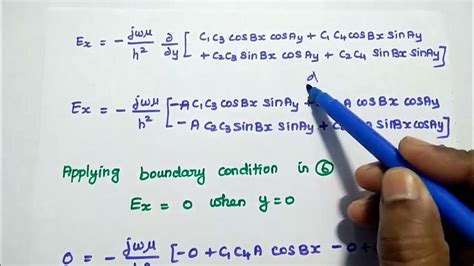 Ex = - jωμ/h² ∂/∂y [ C₁C₃ cosBx cosAy + C₁C₄ cosBx sinAy
+ C₂C₃ sinBx cosAy + C₂C₄ sinBx sinAy ]
Ex = - jωμ/h² [ -A C₁C₃ cosBx sinAy + A cosBx cosAy
- A C₂C₃ sinBx sinAy + A sinBx cosAy ]
Applying boundary condition in ⑥
Ex = 0 when y=0
0 = - jωμ/h² [ -0 + C₁C₄ A cosBx - 0 +